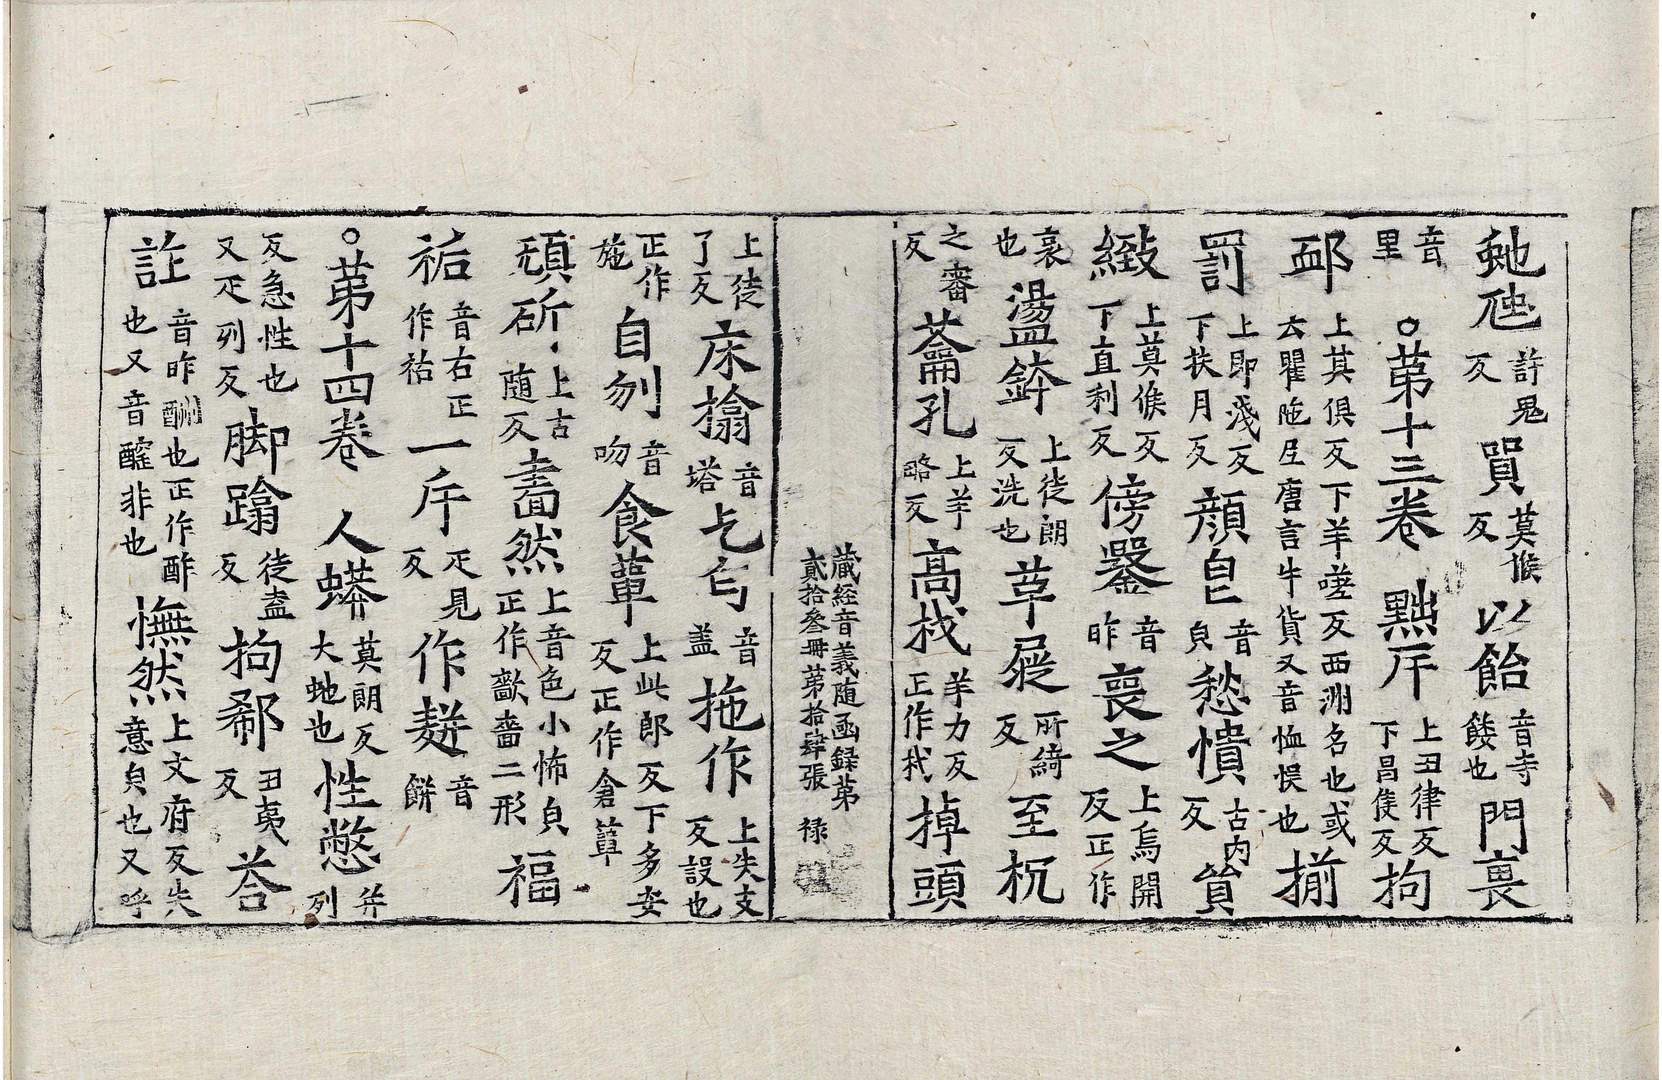 虵虺許鬼反貿莫候反以飴音寺餧也門裏
音里○第十三卷點斤上丑律反下昌隻反拘
邪上其俱反下羊嗟反西洲名也或云瞿陁尼唐言牛貨又音恤悮也揃
罰上即淺反下扶月反顔皃音皃愁憒古內反貿
緻上莫候反下直利反傍鑿音昨喪之上烏開反正作
哀也盪鉢上徒朗反洗也草屣所綺反至杌
之審反龠孔上羊略反高栰羊力反正作杙掉頭
藏經音義随函録第貳拾叄冊第拾肆張 禄
上徒了反床搨音塔乞匄音盖拖作上失支反設也
正作施自刎音吻食葷上此郎反下多安反正作倉簞
頑斫上古随反嗇然上音色小怖皃正作歖嗇二形福
祐音右正作祐一斤疋見反作麸音餅
○第十四卷人蟒莫朗反大虵也性憋并列
反急性也又疋列反脚蹹徒盍反拘郗丑夷反荅
詐音昨酬也正作酢也又音醝非也憮然上文府反失意皃也又呼